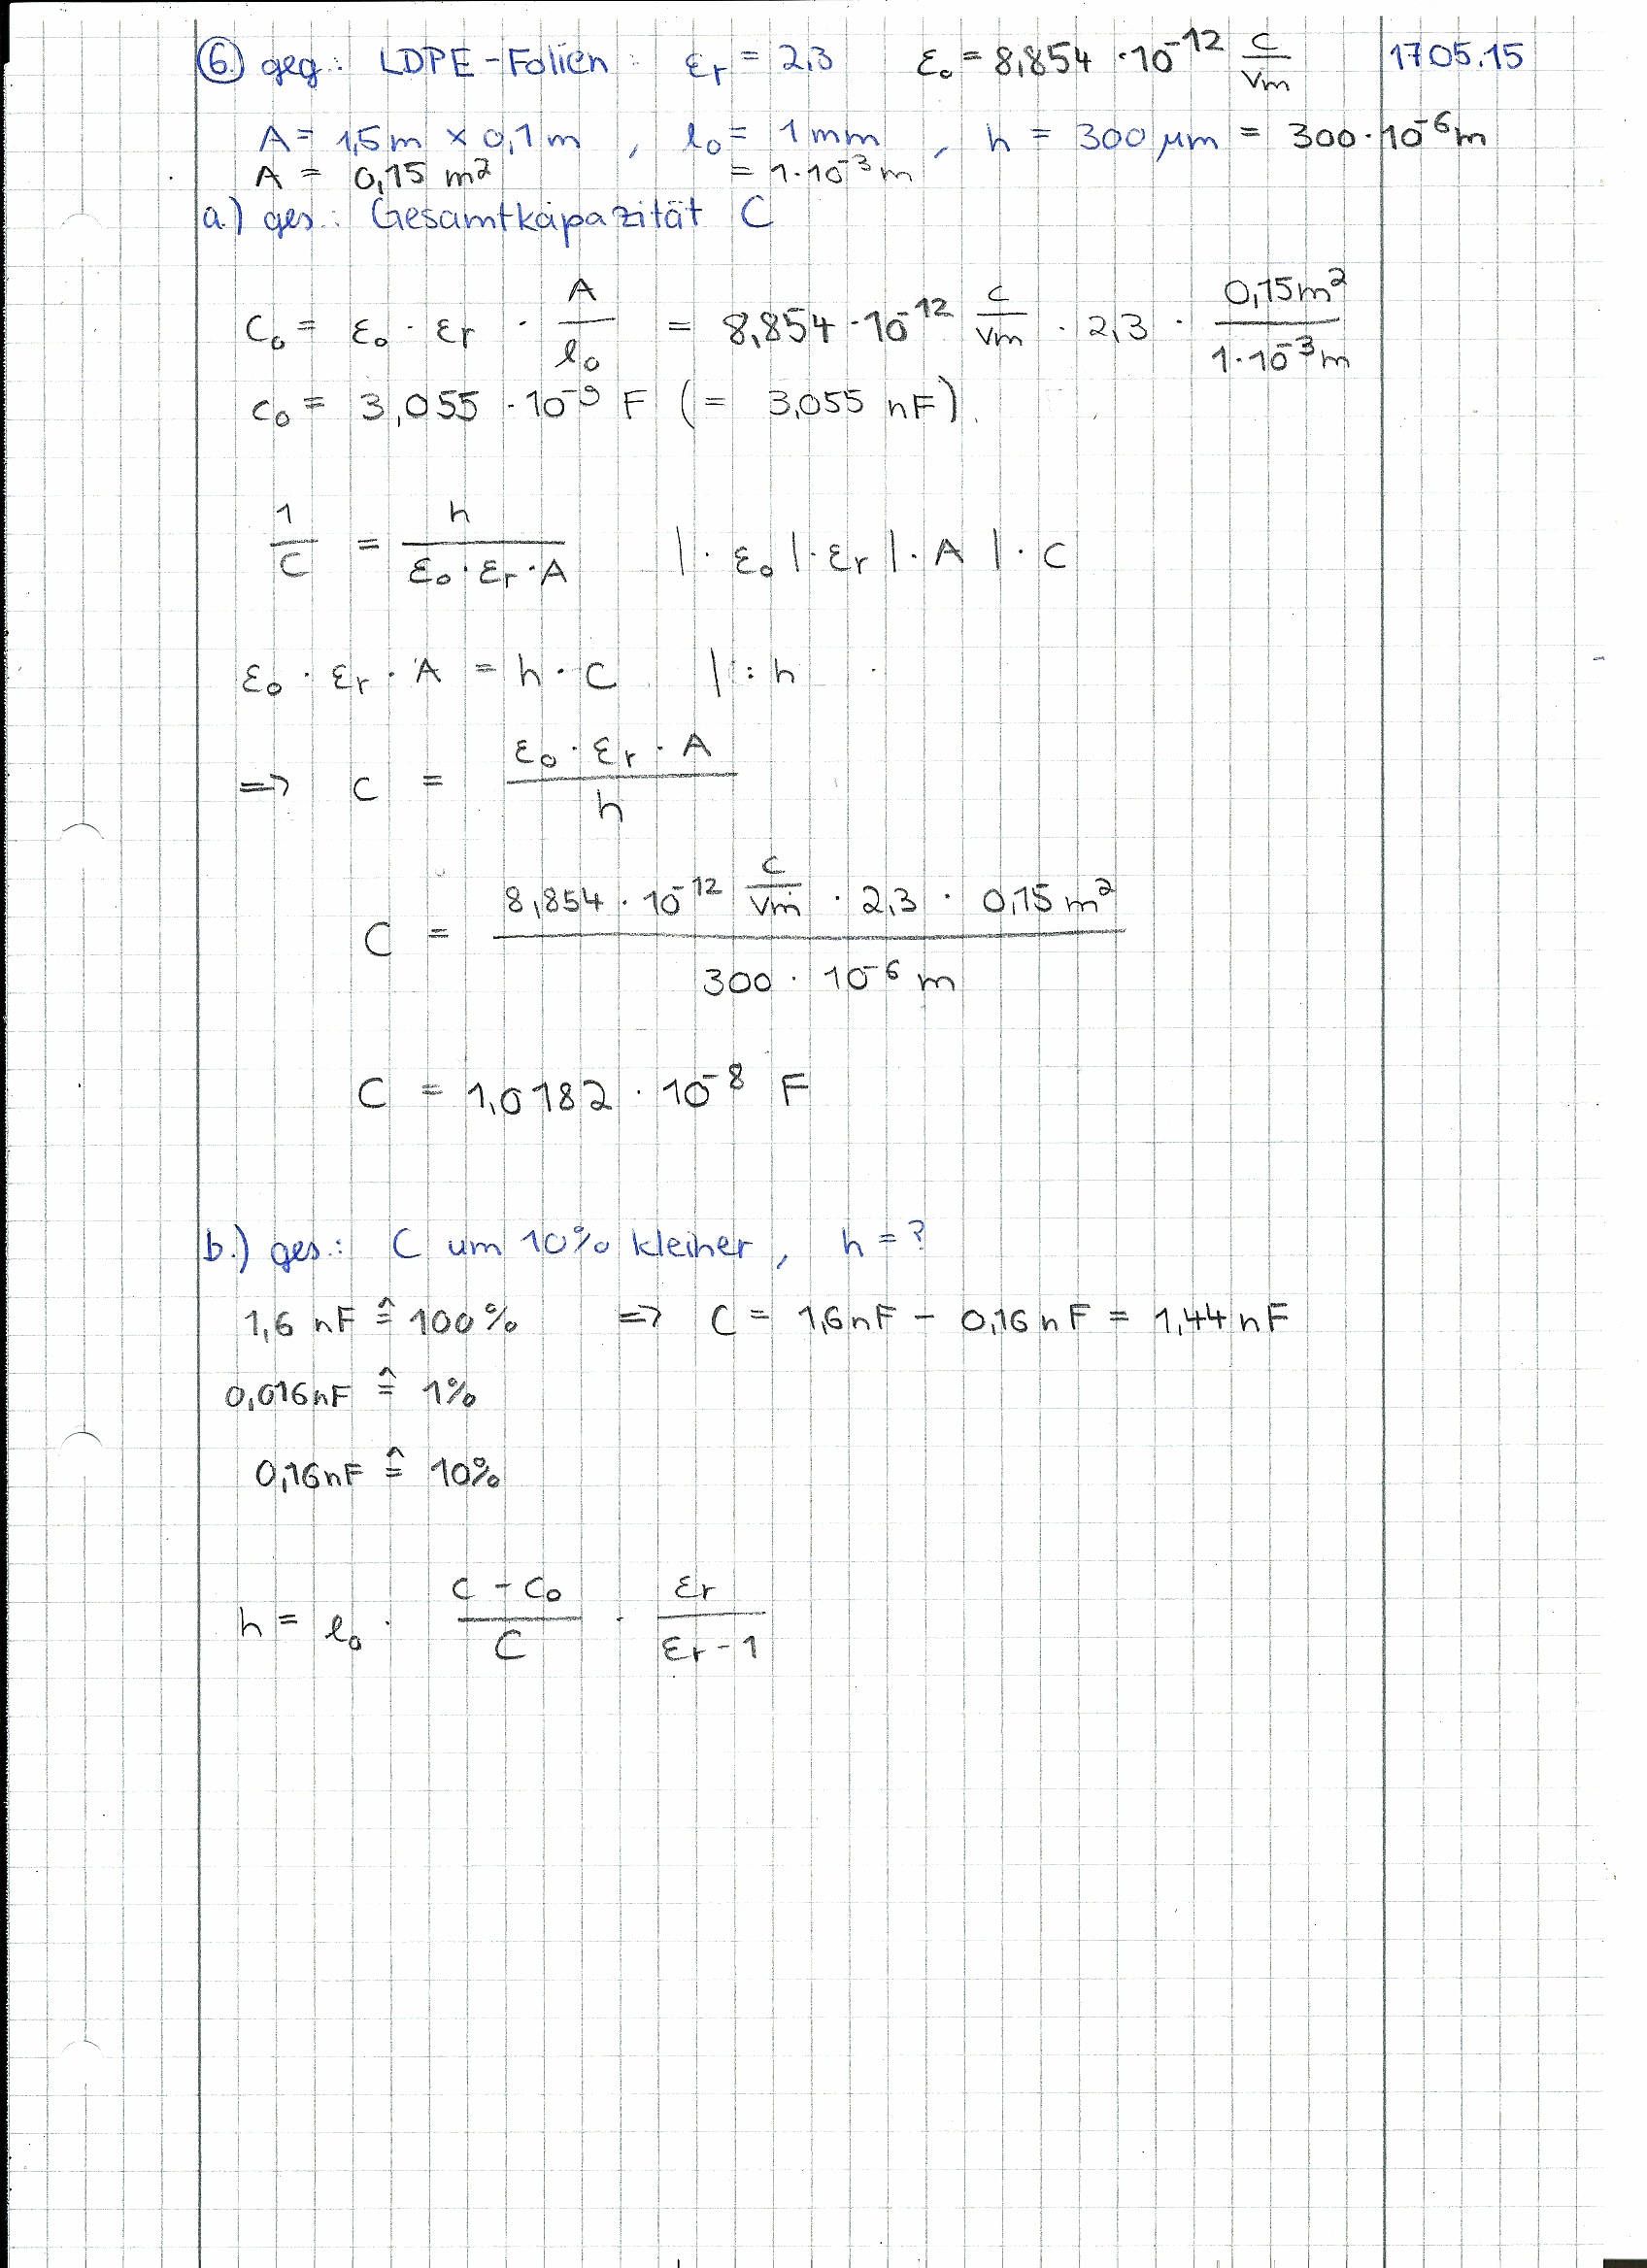 6.) geg.: LDPE-Folien: εr = 2,3 ε₀ = 8,854 · 10⁻¹² C/Vm 1705.15
A = 1,5m × 0,1m , l₀ = 1mm , h = 300 µm = 300 · 10⁻⁶ m
A = 0,15 m² = 1·10⁻³ m
a.) ges.: Gesamtkapazität C
C₀ = ε₀ · εr · A/l₀ = 8,854 · 10⁻¹² C/Vm · 2,3 · 0,15m²/1·10⁻³m
C₀ = 3,055 · 10⁻⁹ F (= 3,055 nF).
1/C = h/(ε₀ · εr · A) |· ε₀ |· εr |· A |· C
ε₀ · εr · A = h · C |: h
=> C = (ε₀ · εr · A)/h
C = (8,854 · 10⁻¹² C/Vm · 2,3 · 0,15 m²)/(300 · 10⁻⁶ m)
C = 1,0182 · 10⁻⁸ F
b.) ges.: C um 10% kleiner, h = ?
1,6 nF ≙ 100% => C = 1,6nF - 0,16nF = 1,44nF
0,016nF ≙ 1%
0,16nF ≙ 10%
h = l₀ · (C - C₀)/C · εr/(εr - 1)